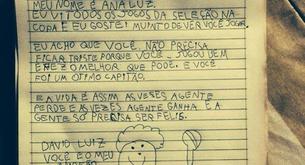 MEU NOME É ANA LUIZ.
EU VI TODOS OS JOGOS DA SELEÇÃO NA
COPA E EU GOSTEI MUINTO DE VER VOCÊ JOGAR.
EU ACHO QUE VOCÊ NÃO PRECISA
FICAR TRISTE PORQUE VOCÊ JOGOU BEM
E FEZ O MELHOR QUE PODE. E VOCÊ
FOI UM ÓTIMO CAPITÃO.
E A VIDA É ASSIM AS VESES AGENTE
PERDE E AS VEZES AGENTE GANHA. E A
GENTE SÓ PRECISA SER FELIS.
DAVID LUIZ
VOCÊ É O MEU